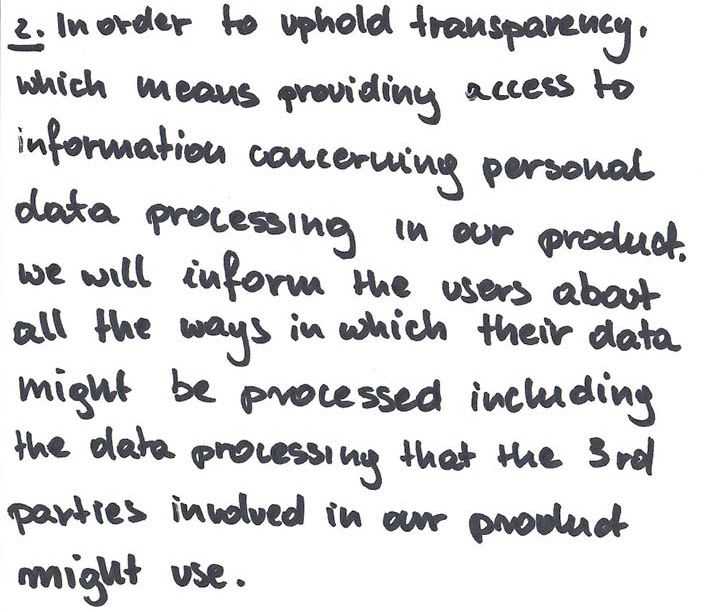 2. In order to uphold transparency,
which means providing access to
information concerning personal
data processing in our product,
we will inform the users about
all the ways in which their data
might be processed including
the data processing that the 3rd
parties involved in our product
might use.